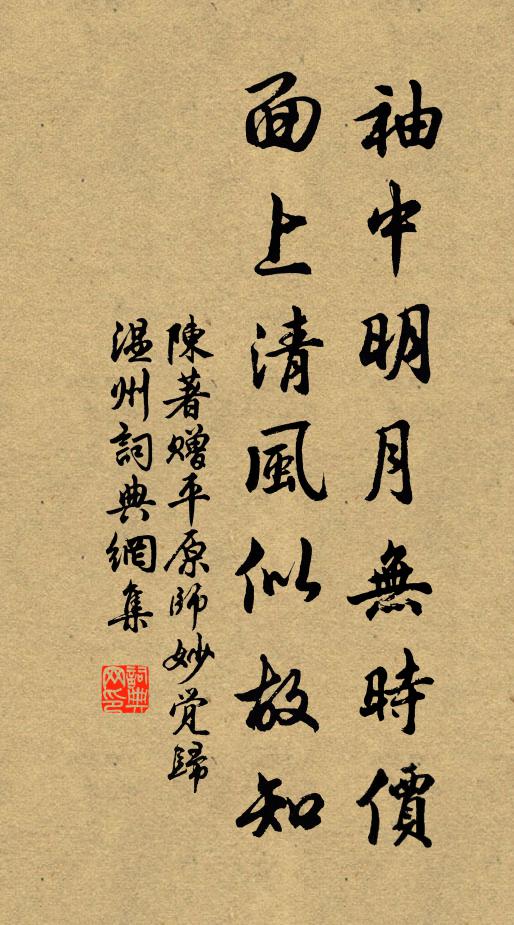 袖中明月無時價
面上清風似故知
陳著贈平原師妙覺歸
温州詞典網集
詞典网印